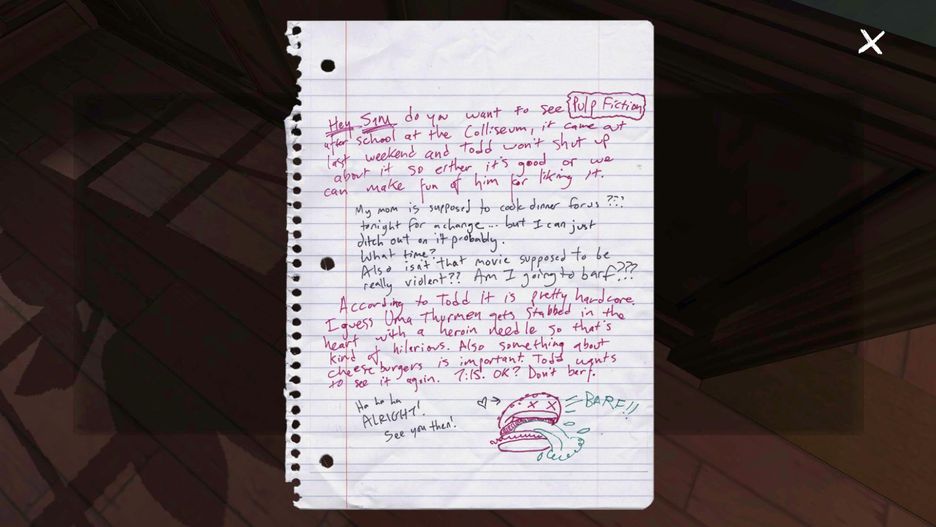 Hey Sam do you want to see Pulp Fiction
after school at the Colliseum, it came out
last weekend and Todd won't shut up
about it so either it's good or we
can make fun of him for liking it.
My mom is supposed to cook dinner for us???
tonight for a change... but I can just
ditch out on it probably.
What time?
Also isn't that movie supposed to be
really violent?? Am I going to barf???
According to Todd it is pretty hardcore,
I guess Uma Thurmen gets stabbed in the
heart with a heroin needle so that's
kind of hilarious. Also something about
cheeseburgers is important. Todd wants
to see it again. 7:15. OK? Don't barf.
Ha ha ha
ALRIGHT!
See you then!
BARF!!
X